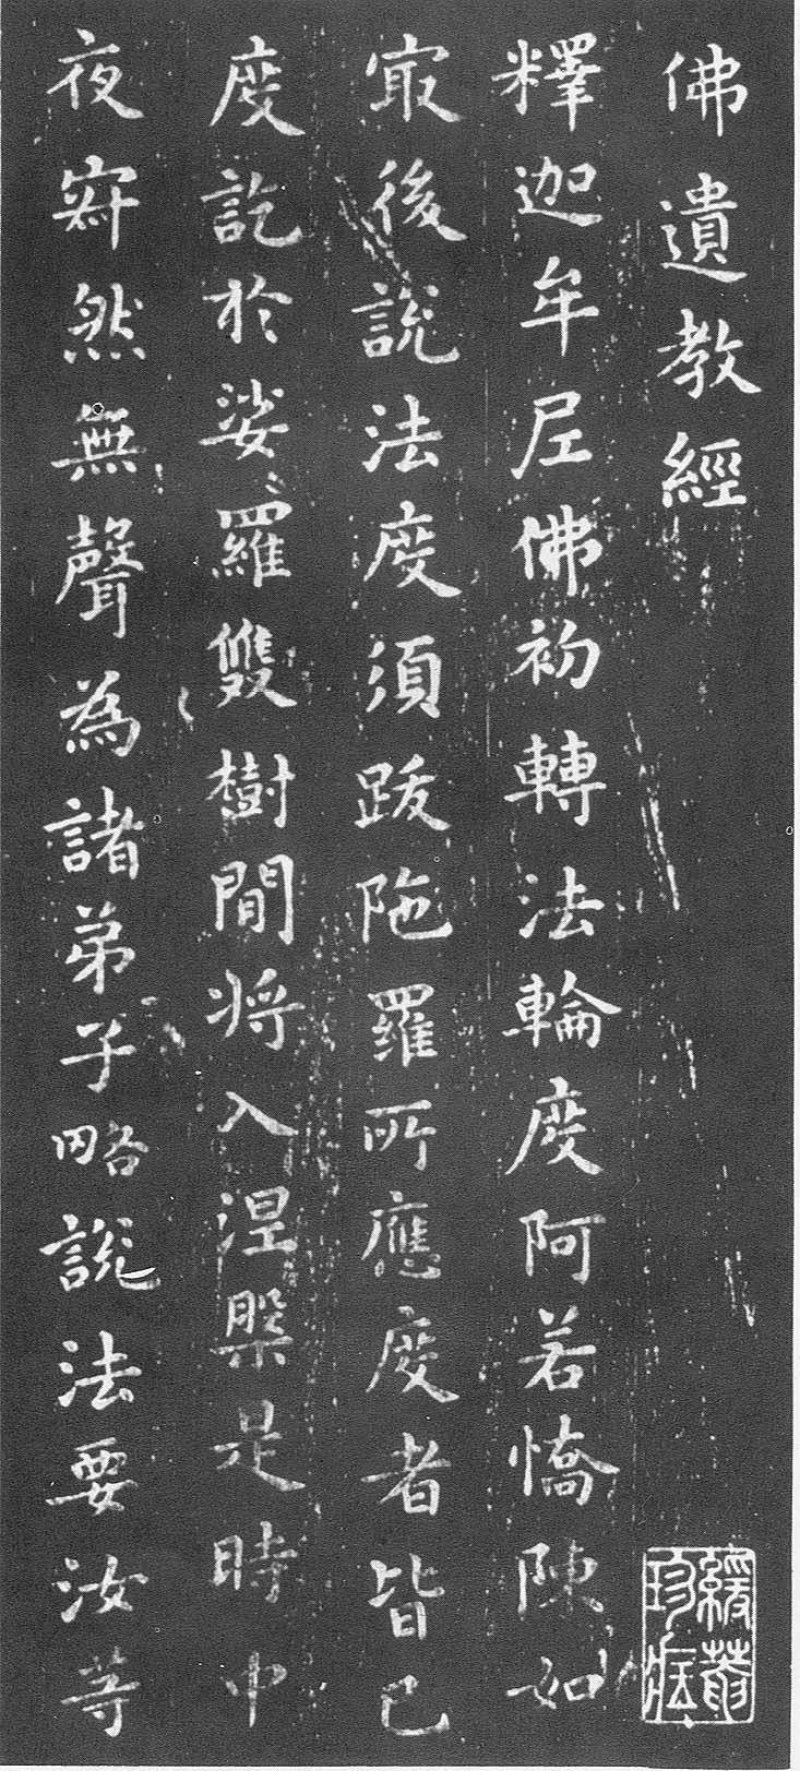 佛遺教經
釋迦牟尼佛初轉法輪度阿若憍陳如
冣後說法度須跋陁羅所應度者皆已
度訖於娑羅雙樹間將入涅槃是時中
夜寂然無聲為諸弟子略說法要汝等